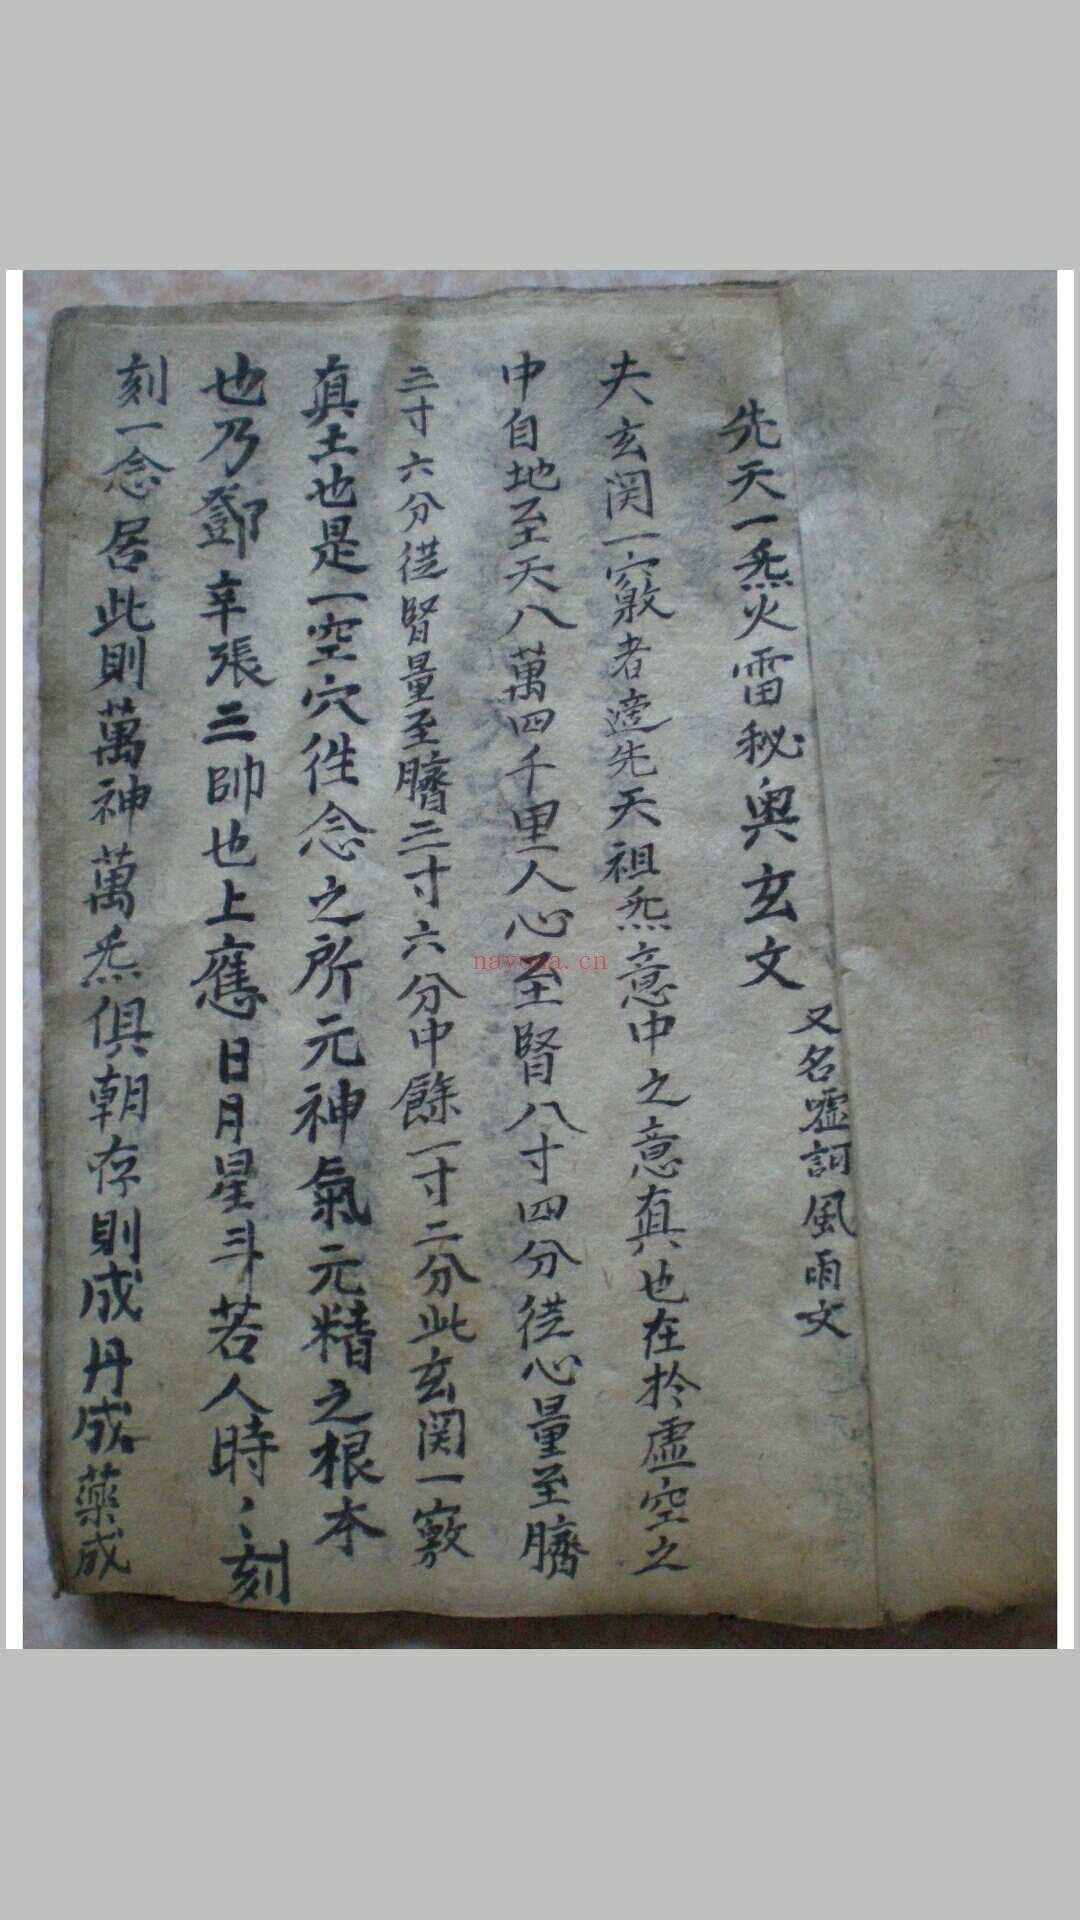 先天一炁火雷秘奥玄文
又名嘘訶風雨文
夫玄関一竅者適先天祖炁意中之意真也在於虚空之
中自地至天八萬四千里人心至腎八寸四分従心量至臍
三寸六分従腎量至臍三寸六分中餘一寸二分此玄関一竅
真土也是一空穴性念之所元神氣元精之根本
也乃鄧辛張三帥也上應日月星斗若人時〻刻
刻一念居此則萬神萬炁俱朝存則成丹成藥成
nayona.cn